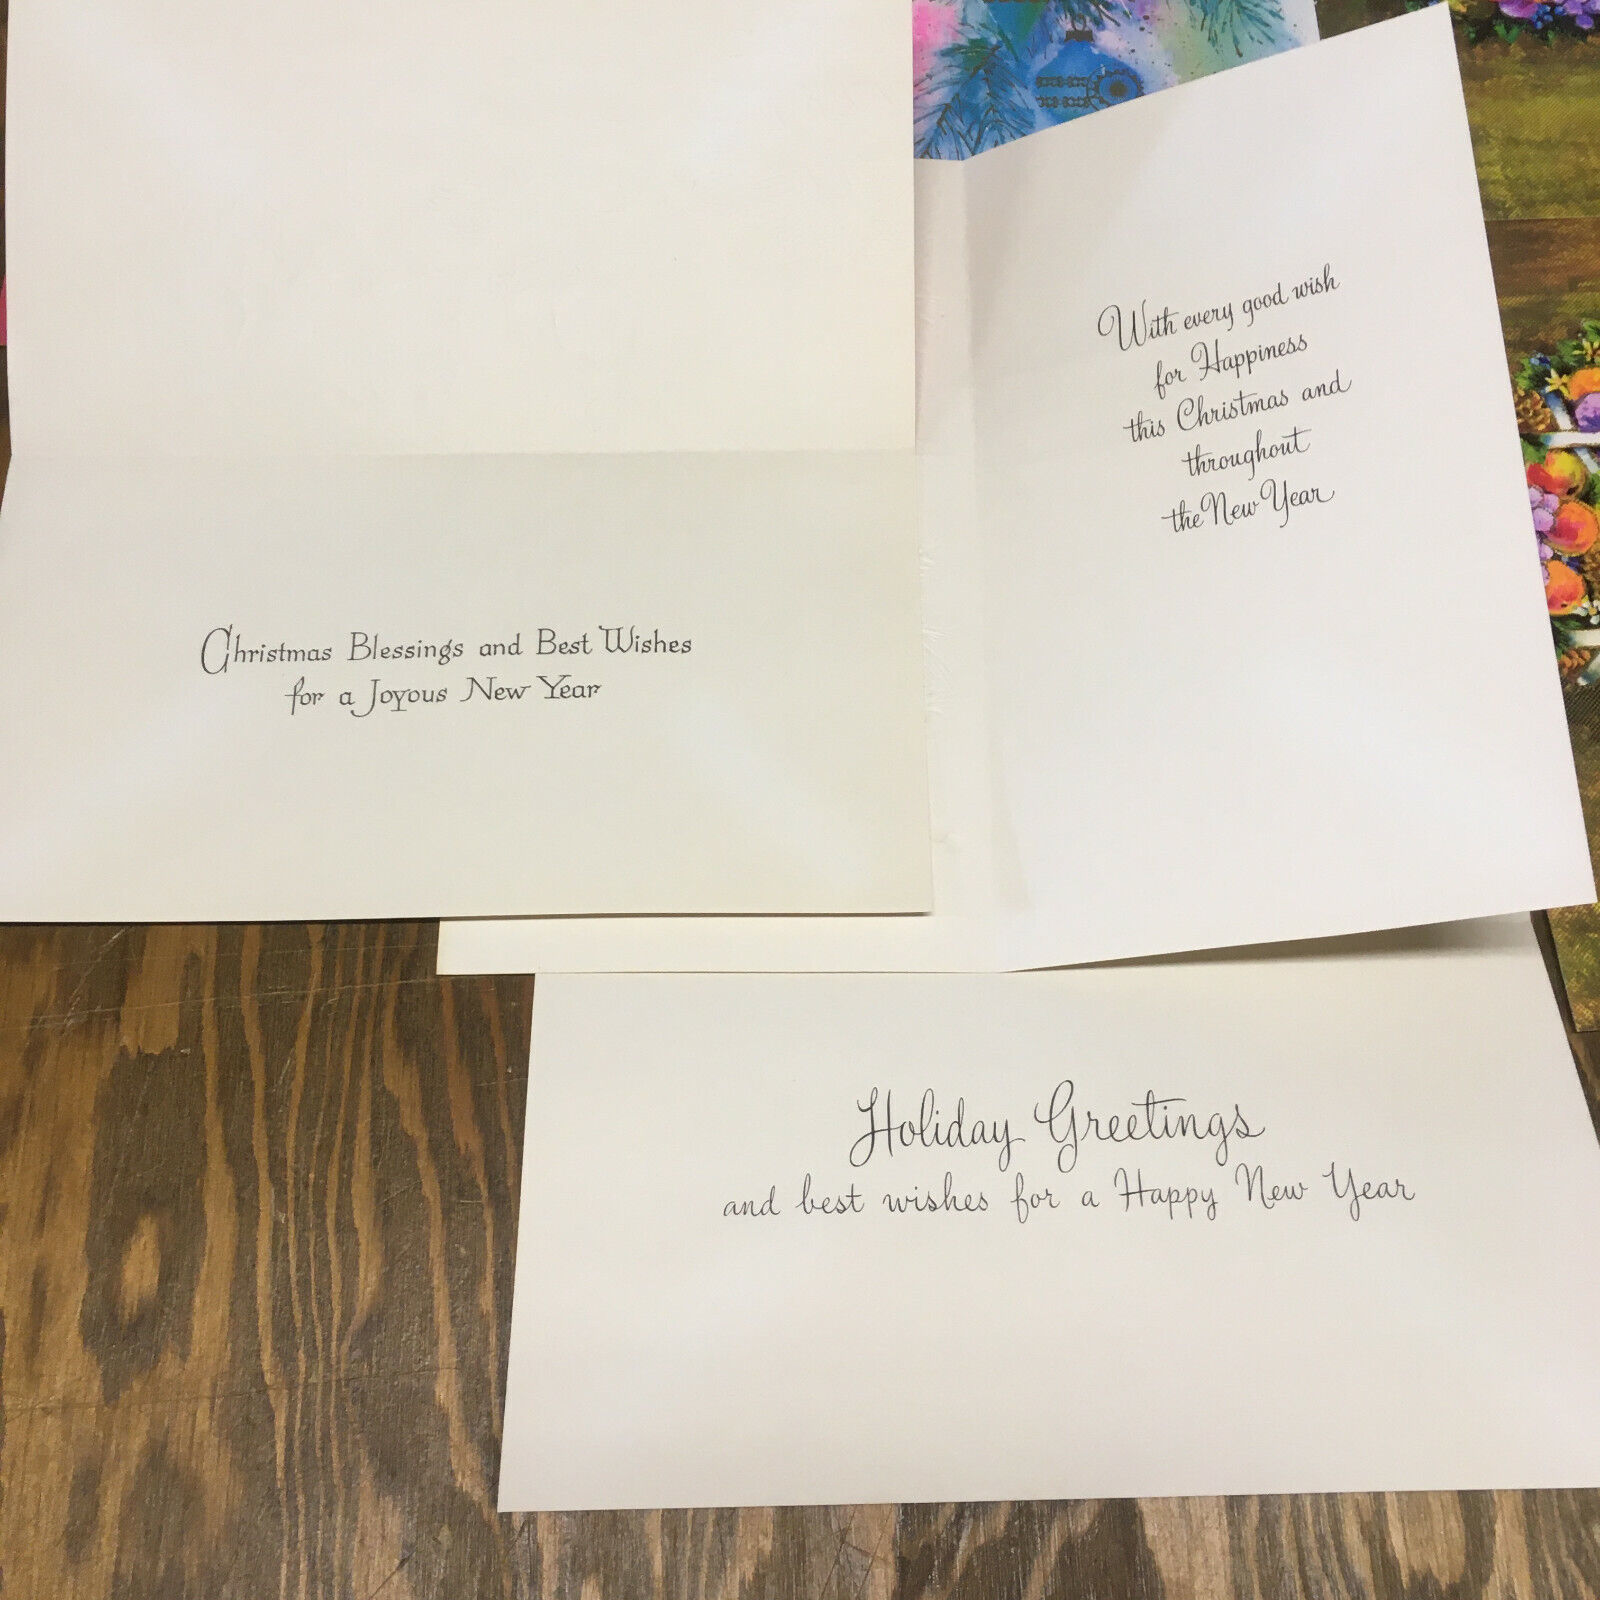 Christmas Blessings and Best Wishes
for a Joyous New Year
With every good wish
for Happiness
this Christmas and
throughout
the New Year
Holiday Greetings
and best wishes for a Happy New Year